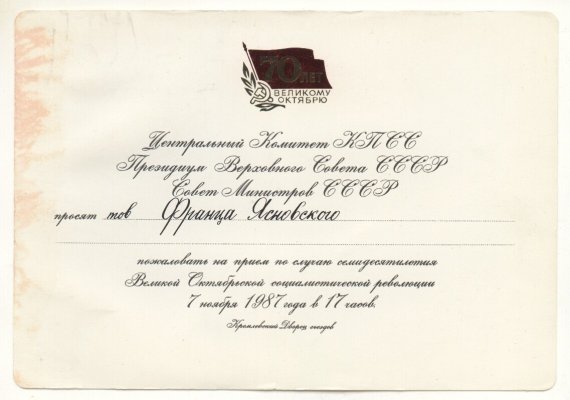 70 ЛЕТ
ВЕЛИКОМУ
ОКТЯБРЮ
Центральный Комитет КПСС
Президиум Верховного Совета СССР
Совет Министров СССР
просят тов Франца Ясновского
пожаловать на прием по случаю семидесятилетия
Великой Октябрьской социалистической революции
7 ноября 1987 года в 17 часов.
Кремлевский Дворец съездов